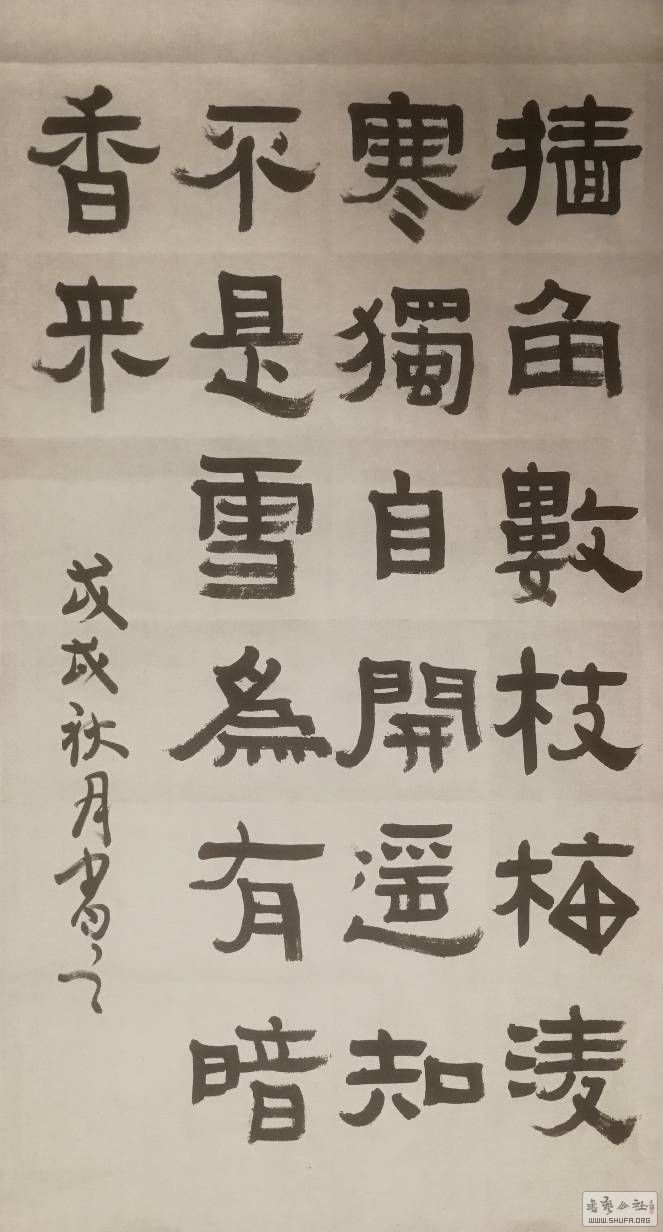 墙角數枝梅淩
寒獨自開遥知
不是雪為有暗
香来
戊戌秋月書之
书艺公社
WWW.SHUFA.ORG